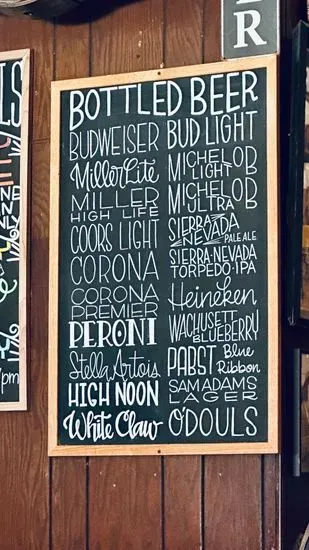 R
BOTTLED BEER
BUDWEISER
Miller Lite
MILLER
HIGH LIFE
COORS LIGHT
CORONA
CORONA
PREMIER
PERONI
Stella Artois
HIGH NOON
White Claw
BUD LIGHT
MICHELOB
LIGHT
MICHELOB
ULTRA
SIERRA
NEVADA PALE ALE
SIERRA-NEVADA
TORPEDO-IPA
Heineken
WACHUSETT
BLUEBERRY
PABST Blue
Ribbon
SAM ADAMS
LAGER
O'DOULS